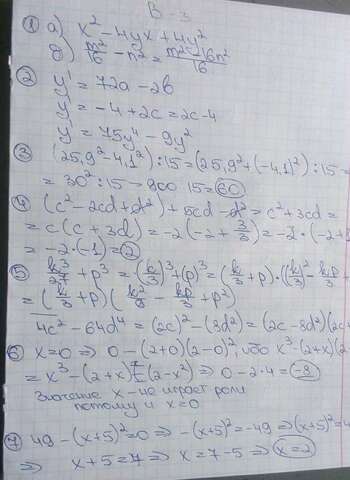 В-3
① а) x² - 4yx + 4y²
б) m²/16 - n² = (m² - 16n²)/16
② y' = 72a - 2b
y' = -4 + 2c = 2c - 4
y' = 75y⁴ - 9y²
③ (25,9² - 4,1²) : 15 = (25,9² + (-4,1)²) : 15 =
= 30² : 15 = 900 : 15 = 60
④ (c² - 2cd + d²) + 5cd - d² = c² + 3cd =
= c(c + 3d) = -2(-2 + 3/3) = -2·(-2+
= -2·(-1) = 2
⑤ k³/27 + p³ = (k/3)³ + (p)³ = (k/3 + p)·((k/3)² - kp/3 +
= (k/3 + p)(k²/9 - kp/3 + p²)
4c² - 64d⁴ = (2c)² - (8d²) = (2c - 8d²)(2c+
⑥ x=0 ⇒ 0 - (2+0)(2-0)², ибо x³·(2+x)(2-
= x³ - (2+x)(2-x²) ⇒ 0 - 2·4 = -8
Значение x - не играет роли
потому и x=0
⑦ 49 - (x+5)² = 0 ⇒ -(x+5)² = -49 ⇒ (x+5)² = 4
⇒ x+5 = 7 ⇒ x = 7-5 ⇒ x = 2